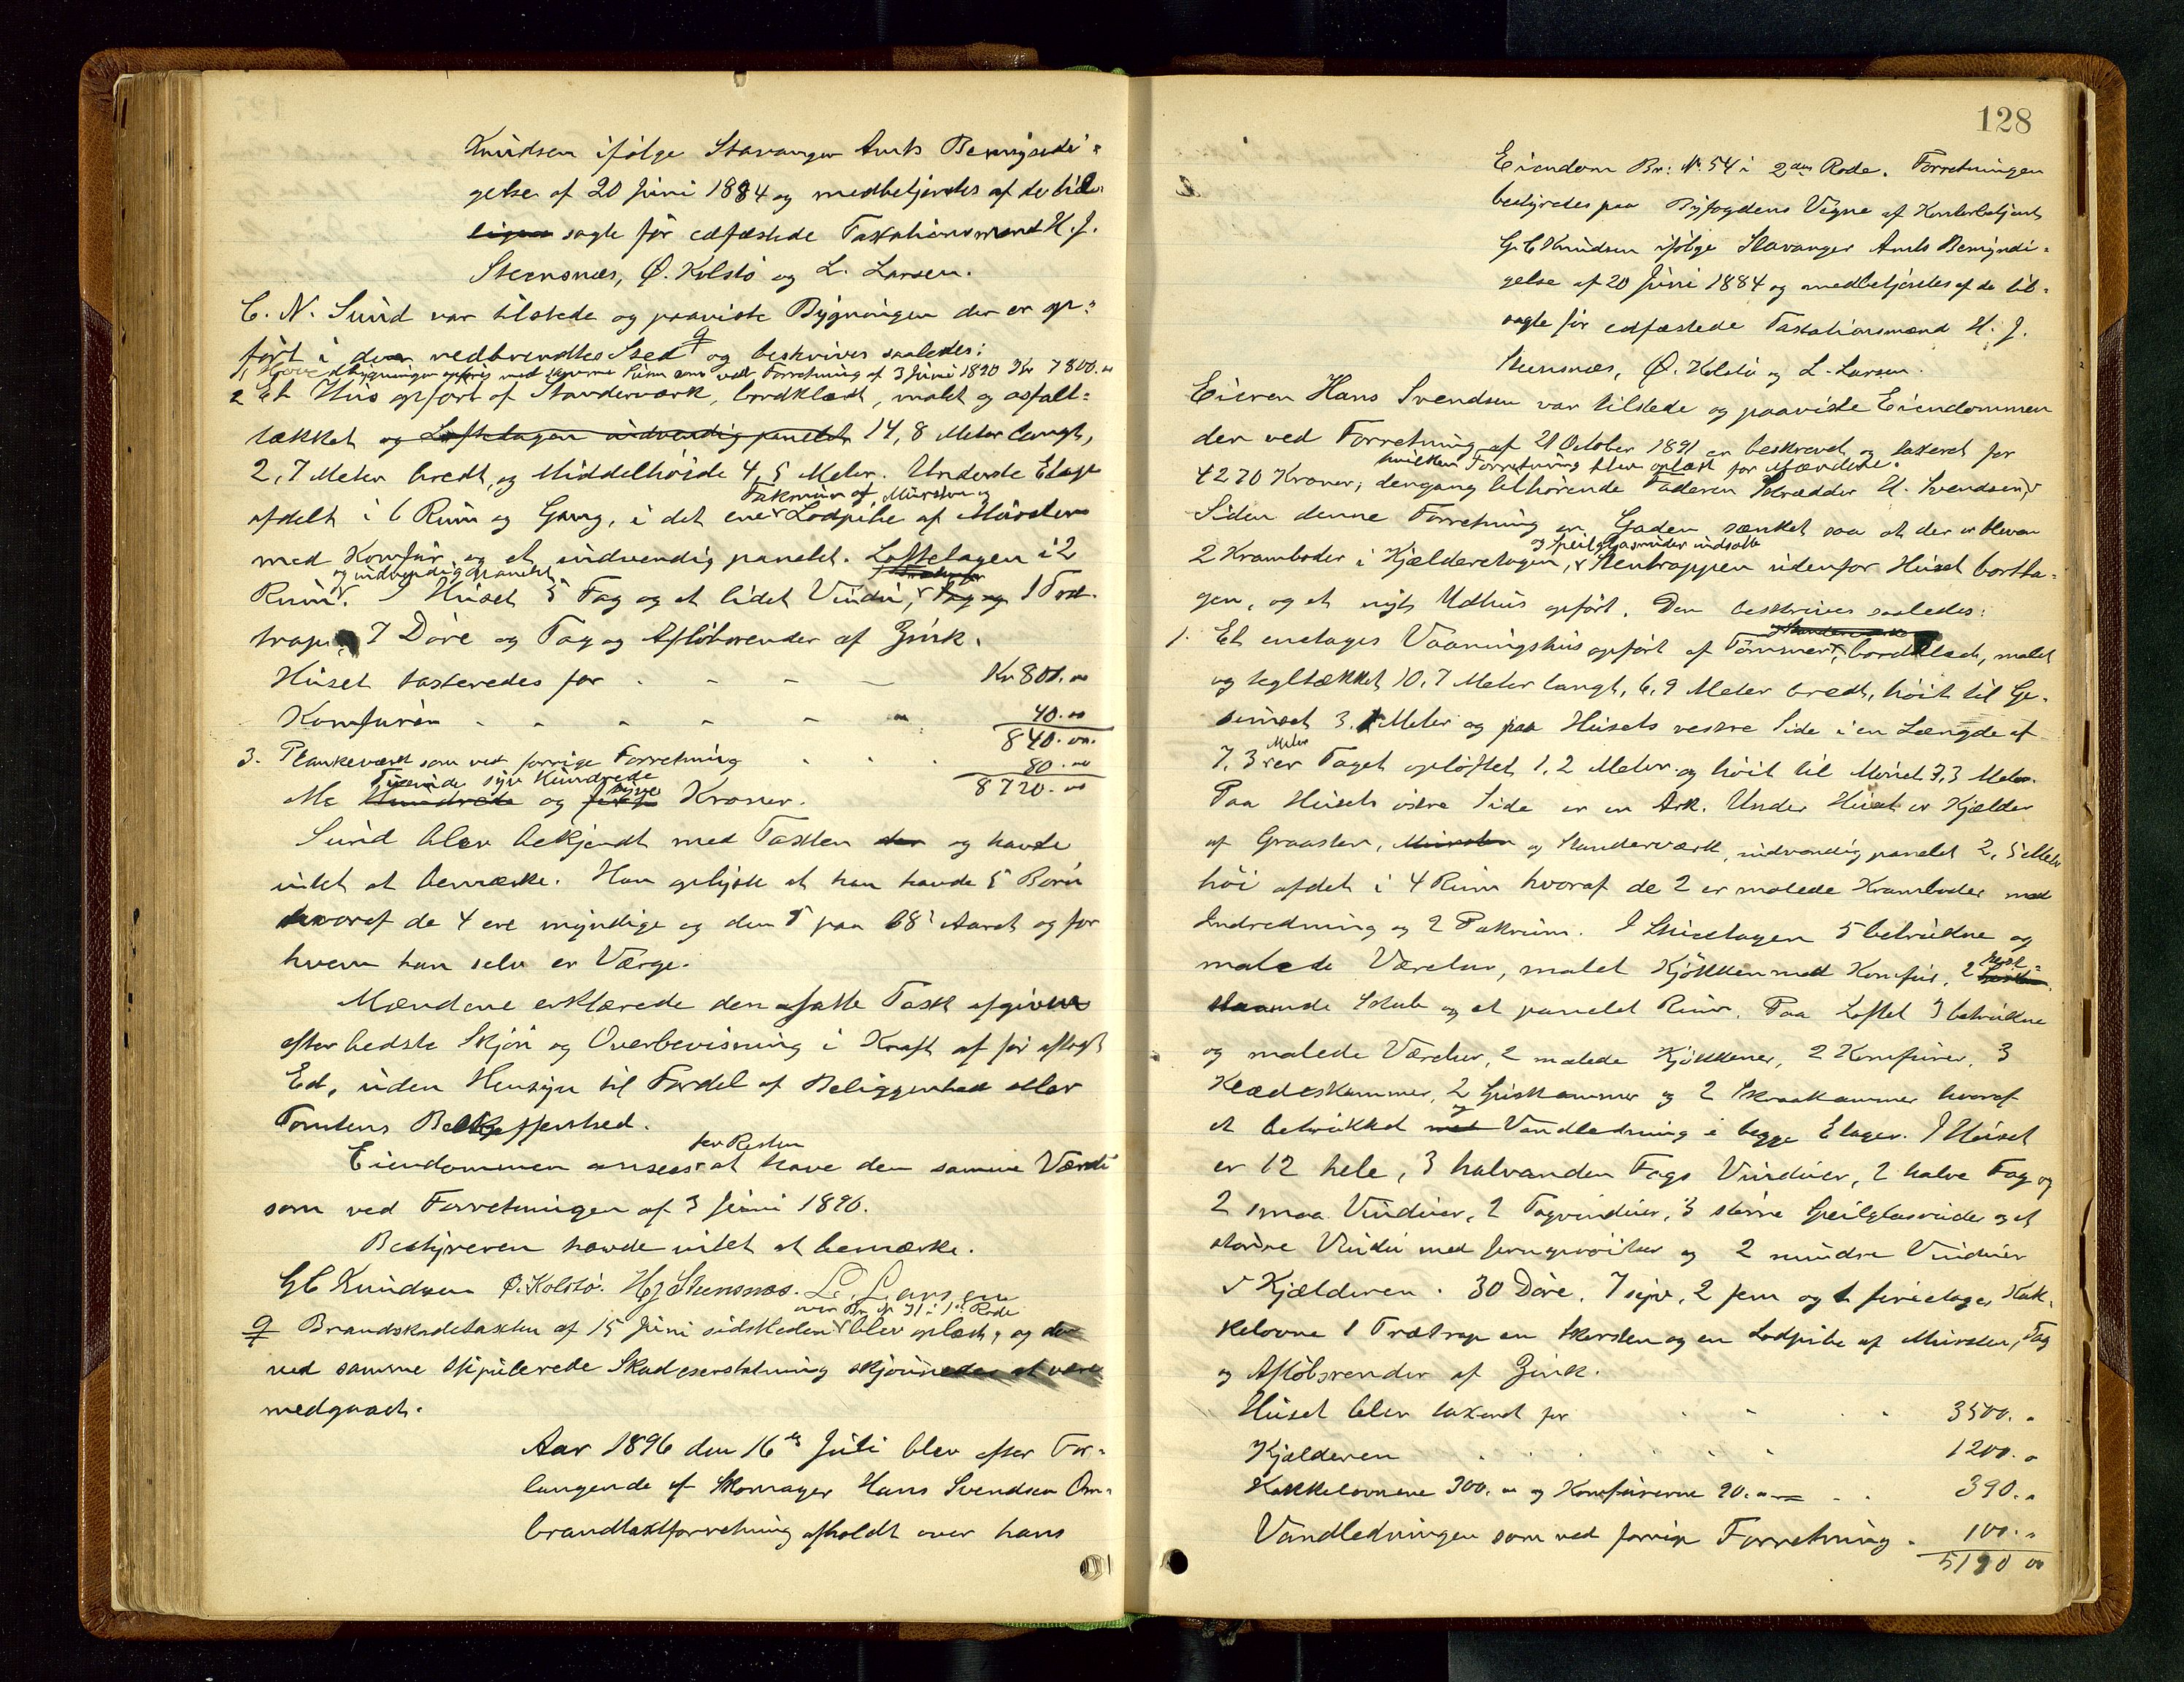 Knudsen ifølge Stavanger Amts Bemyndi=
gelse af 20 Juni 1884 og medbetjentes af de tid
ligen sagte før edfæstede Taxationsmænd H. J.
Steensnæs, Ø. Kolstø og L. Larsen.
C. N. Sund var tilstede og paaviste Bygningen der er op=
ført i den nedbrændtes Sted og beskrives saaledes:
1, Hovedbygningen med samme Sum som ved Forretning af 3 Juni 1890 Kr 7800.00
2 Et Hus opført af Standerværk, bordklædt, malet og asfalt=
tækket og Loftetagen indvendig panelet 14,8 Meter langt,
2,7 Meter bredt, og Middelhøide 4,5 Meter. Underste Etage
Takmur af Mursten og
afdelt i 6 Rum og Gang, i det ene Lodpibe af Mursten
med Komfur og et indvendig panelet. Loftetagen i 2
og indvendig panelet
Rum. I Huset 5 Fag og et lidet Vindu, Fag og 1 Træ
trap, 7 Døre og Tag og Afløbsrender af Zink.
Huset taxeredes for Kr 800.00
Komfuren 40.00
840.00
3. Plankeværk som ved forrige Forretning 80.00
Tusinde syv Hundrede tyve
8720.00
Ale Hundrede og Kroner.
Sund blev bekjendt med Taxten der og havde
intet at bemærke. Han oplyste at han havde 5 Børn
hvoraf de 4 ere myndige og den 5 paa 18 Aaret og for
hvem han selv er Værge.
Mændene erklærede den afsatte Taxt afgiven
efter bedste Skjøn og Overbevisning i Kraft af før aflagt
Ed, uden Hensyn til Fordel af Beliggenhed eller
Tomtens Beskaffenhed.
for Resten
Eiendommen ansees at have den samme Værdi
som ved Forretningen af 3 Juni 1890.
Bestyreren havde intet at bemærke.
G C Knudsen Ø. Kolstø. H J Stensnæs. L. Larsen
over Br. Nr 31 i 1ste Rode
Brandskadetaxten af 15 Juni sidstleden blev oplæst, og den
ved samme stipulerede Skadeserstatning skjønnedes at være
medgaaet.
Aar 1896 den 16de Juli blev efter For=
langende af Skomager Hans Svendsen Om=
brandtaxtforretning afholdt over hans
128
Eiendom Br: No. 54 i 2den Rode. Forretningen
bestyredes paa Byfogdens Vegne af Kontorbetjent
G. C Knudsen ifølge Stavanger Amts Bemyndi=
gelse af 20 Juni 1884 og medbetjentes af de til=
sagte før edfæstede Taxationsmænd H. J.
Stensnæs, Ø. Kolstø og L. Larsen.
Eieren Hans Svendsen var tilstede og paaviste Eiendommen
der ved Forretning af 21 October 1891 er beskrevet og taxeret for
hvilken Forretning blev oplæst for Mændene.
4270 Kroner, dengang tilhørende Faderen Skrædder H. Svendsen,
Siden denne Forretning er Gaden sænket saa at der er bleven
og Speilglasruder indsatte
2 Kramboder i Kjælderetagen, Stentrappen udenfor Huset bortta=
gen, og et nyt Udhus opført. Den beskrives saaledes:
Standerværk
1. Et enetages Vaaningshus opført af Tømmer, bordklædt, malet
og tegltækket 10,7 Meter langt, 6,9 Meter bredt, høit til Ge=
simset 3.1 Meter og paa Husets vestre Side i en Længde af
Meter
7,3 er Taget opløftet 1,2 Meter og høit til Mønet 3,3 Meter.
Paa Husets østre Side er en Ark. Under Huset er Kjælder
af Graasten, Mursten og Standerværk, indvendig panelet 2,5 Meter
høi afdelt i 4 Rum hvoraf de 2 er malede Kramboder med
Indredning og 2 Pakrum. I Stuetagen 5 betrukne og
malede Værelser, malet Kjøkken med Komfur, 2
staaende Skab og et panelet Rum. Paa Loftet 3 betrukne
og malede Værelser, 2 malede Kjøkkener, 2 Komfurer, 3
Klædeskammer, 2 Spiskammer og 2 Skraakammer hvoraf
og
et betrukket med Vandledning i begge Etager. I Huset
er 12 hele, 3 halvanden Fags Vinduer, 2 halve Fag og
2 smaa Vinduer, 2 Tagvinduer, 3 større Speilglasruder og et
større Vindu med Jernsprosser og 2 mindre Vinduer
i Kjælderen. 30 Døre, 7 2 fem og 1 fireetages Kak=
kelovne 1 Trætrap en Skorsten og en Lodpibe af Mursten, Tag
og Afløbsrender af Zink.
Huset blev taxeret for 3500. „
Kjælderen 1200. „
Kakkelovnene 300. „ og Komfurerne 90. „ 390. „
Vandledningen som ved forrige Forretning 100. „
5190 00